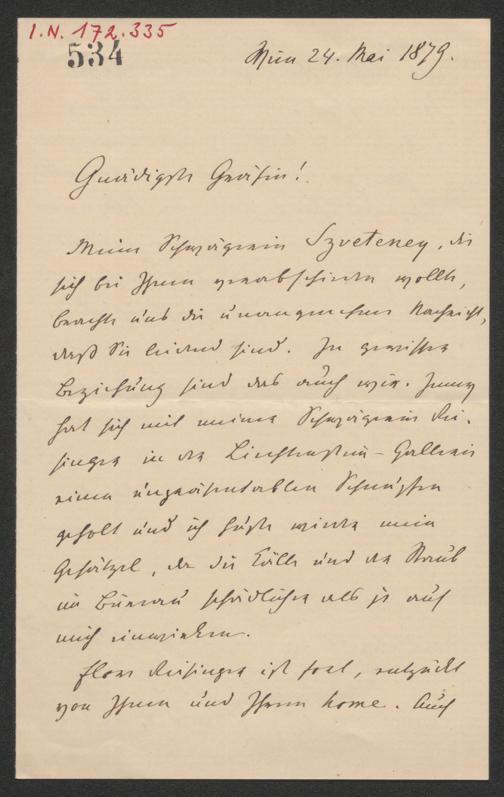 I.N. 172.335
534
Wien 24. Mai 1879.
Gnädigste Gräfin!
Meine Schwägerin Szveteney, die
sich bei Ihnen verabschieden wollte,
brachte uns die unangenehme Nachricht,
daß Sie leidend sind. In gewisser
Beziehung sind das auch wir. Jenny
hat sich mit meiner Schwägerin Rei-
singer in der Liechtenstein-Gallerie
einen unpräsentablen Schnupfen
geholt und ich hüte wieder mein
, da die Kälte und der Staub
im Bureau schädlicher als je auf
mich einwirken.
Flora Reisinger ist fort, entzückt
von Ihnen und Ihrem home. Auch